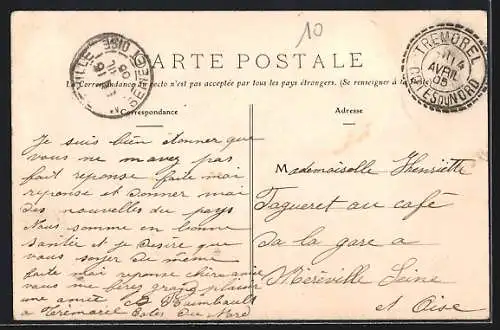 10
CARTE POSTALE
La Correspondance au recto n'est pas acceptée par tous les pays étrangers. (Se renseigner à la Poste)
Correspondance
Adresse
TREMOREL
4
AVRIL
08
COTES DU NORD
Je suis bien étonner que
vous ne mavez pas
fait reponse faite moi
reponse et donner moi
des nouvelles du pays
Nous somme en bonne
santée et je désire que
vous soyer de meme
faite moi reponse chère amie
vous me ferez grand plaisir
une amie Rimbault
a Trémorel Cotes du Nord
Mademoiselle Henriette
Tagueret au café
da la gare a
Méréville Seine
et Oise